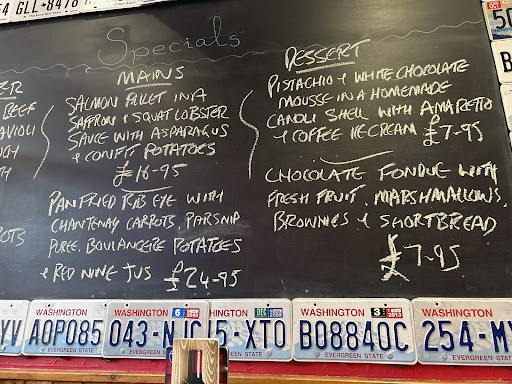 GLL 8478
Specials
BEEF
MAINS
SALMON FILLET IN A
SAFFRON & SQUAT LOBSTER
SAUCE WITH ASPARAGUS
& CONFIT POTATOES
£16-95
PAN FRIED RIB EYE WITH
CHANTENAY CARROTS, PARSNIP
PUREE, BOULANGERE POTATOES
& RED WINE JUS £24-95
DESSERT
PISTACHIO & WHITE CHOCOLATE
MOUSSE IN A HOMEMADE
CANOLI SHELL WITH AMARETTO
& COFFEE ICE CREAM £7-95
CHOCOLATE FONDUE WITH
FRESH FRUIT, MARSHMALLOWS,
BROWNIES & SHORTBREAD
£7-95
YV
WASHINGTON
AOP085
EVERGREEN STATE
WASHINGTON 6
043-NJC
EVERGREEN STATE
HINGTON DEC
5-XTO
EVERGREEN STATE
WASHINGTON 3
B08840C
EVERGREEN STATE
WASHINGTON
254-M
EVERGREEN STATE